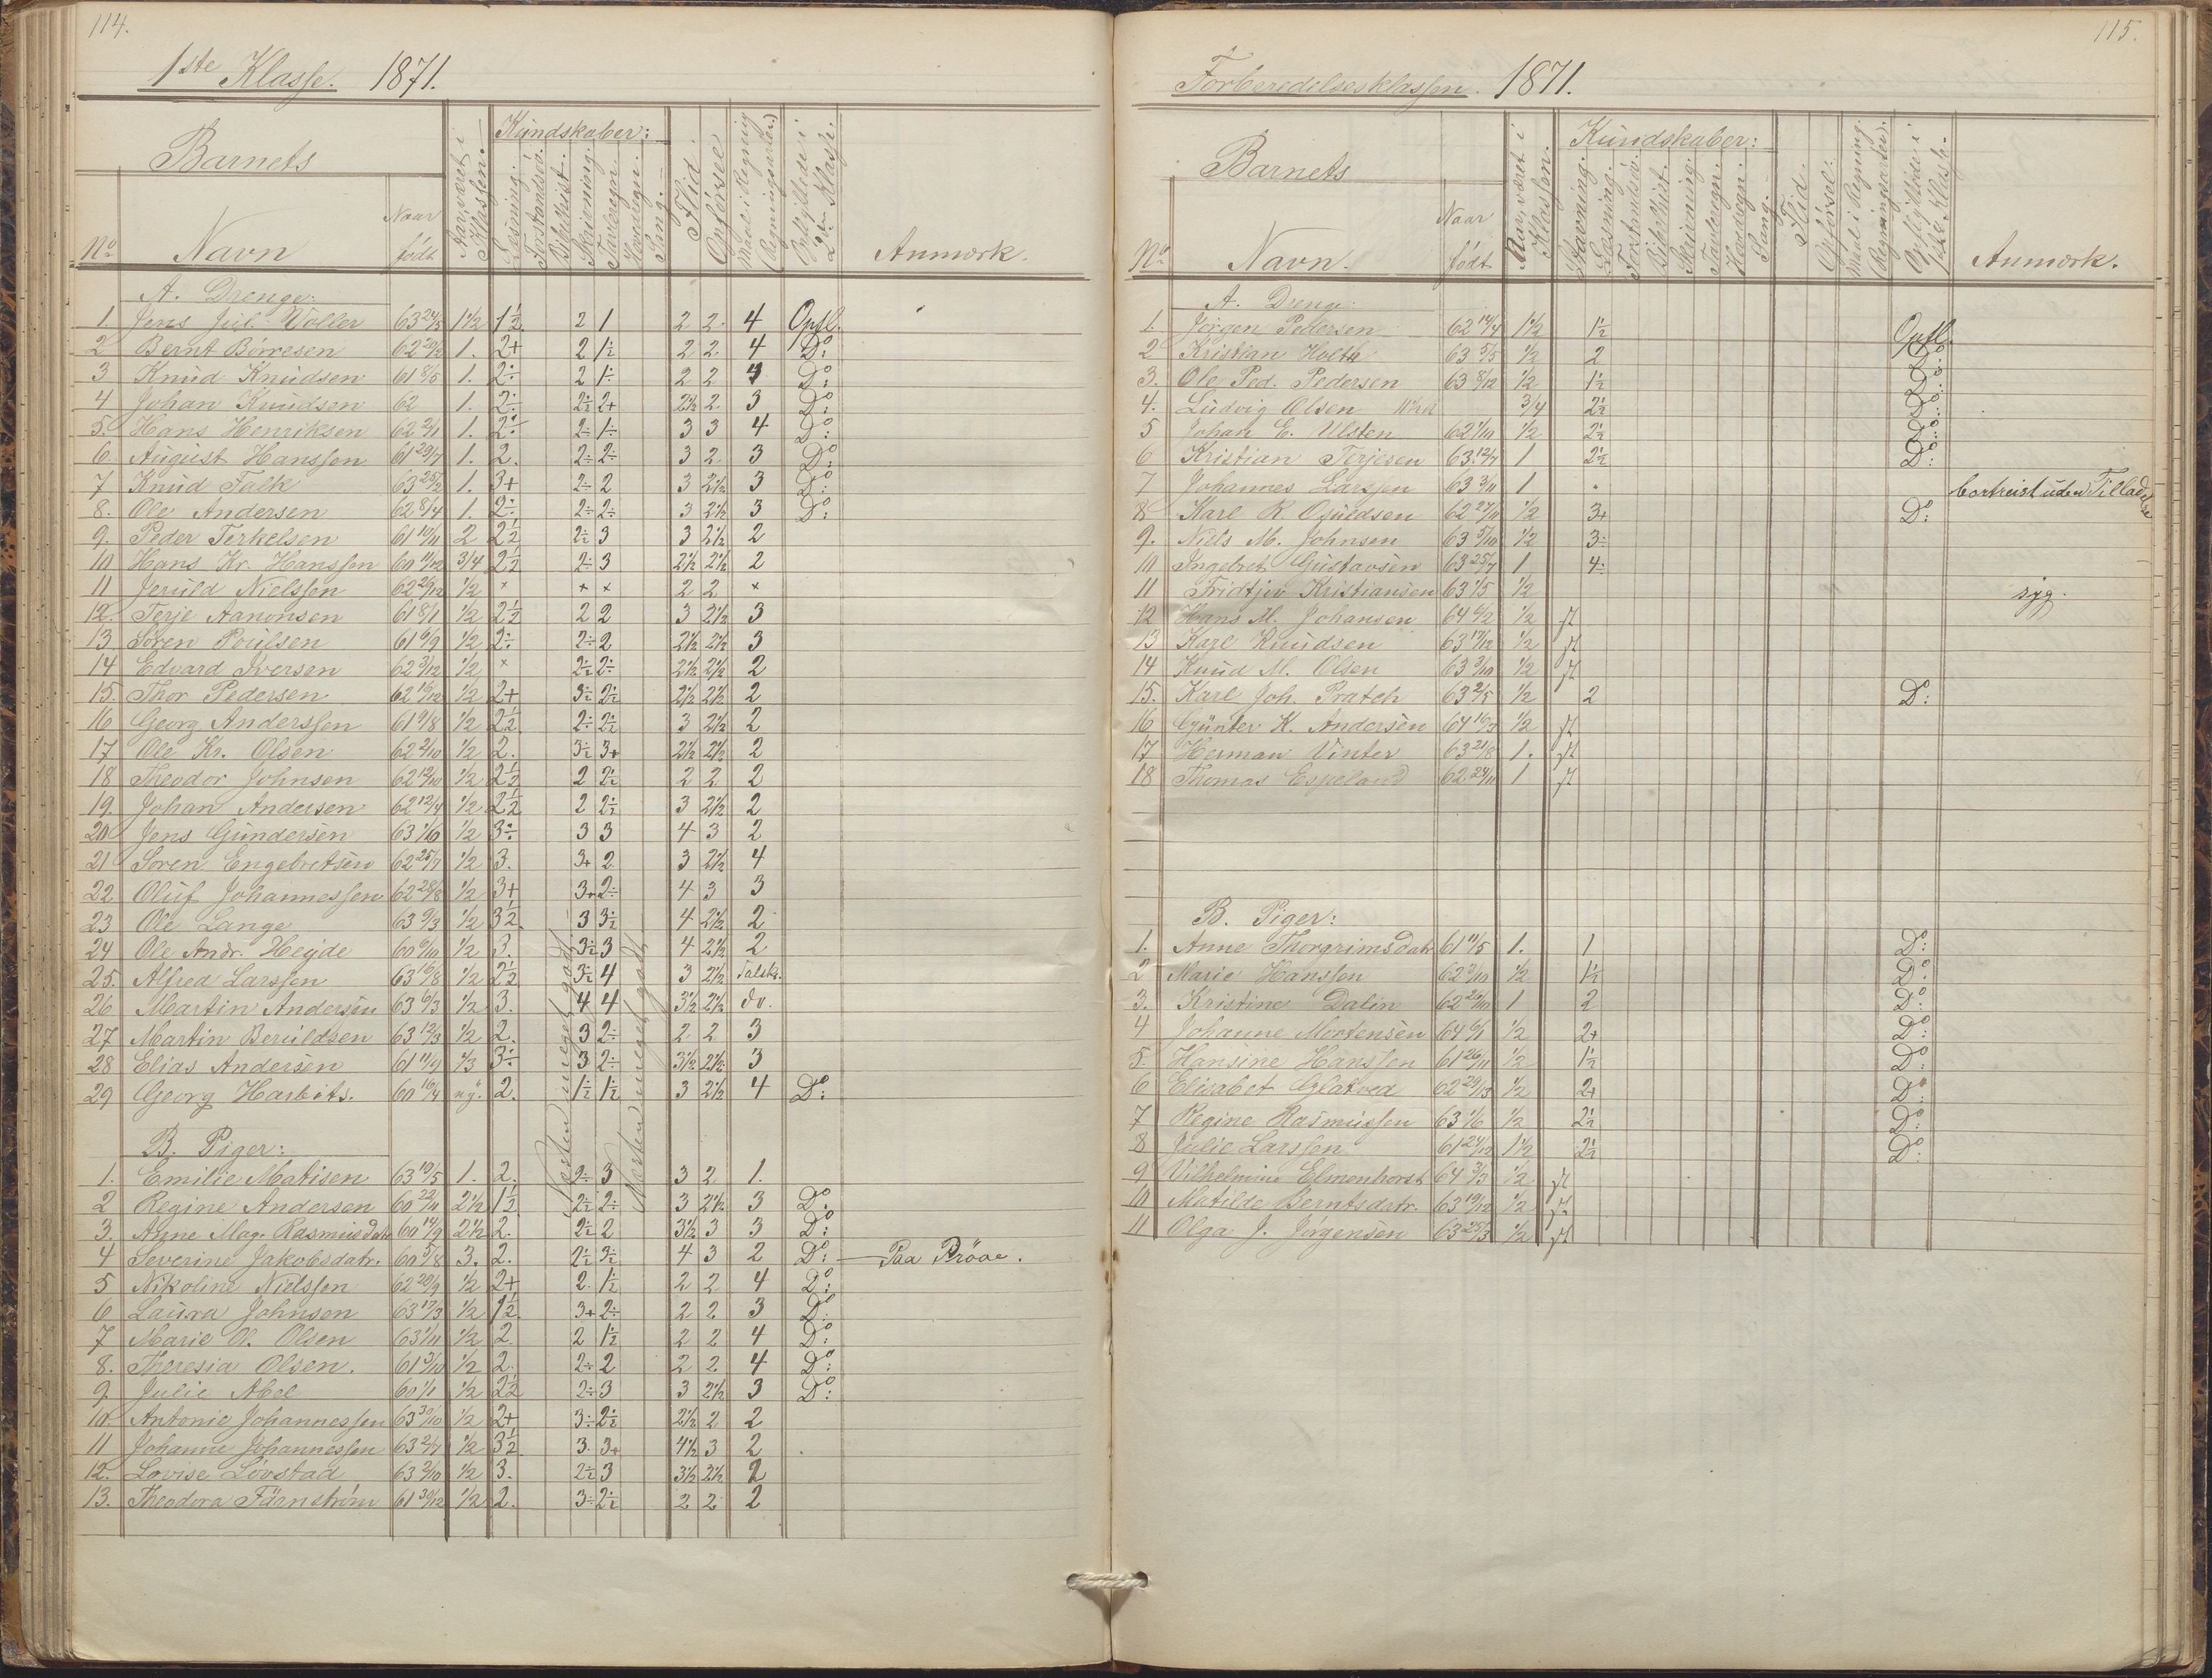 114.
1ste Klasse. 1871.
Barnets
Aar, været i Klassen.
Kundskaber:
Læsning.
Forstandsöv.
Bibelhist.
Skrivning.
Tavleregn.
Hovedregn.
Sang.
Flid.
Opförsel
Maal i Regning (Regningsarter.)
Opflyttede i 2den Klasse.
No Navn Naar födt Anmærk.
A. Drenge:
1. Jens Jul. Voller 63 24/5 1 1/2 1 ½ 2 1 2 2 4 Opfl.
2 Bernt Börresen 62 20/2 1. 2+ 2 1½ 2 2 4 Do:
3 Knud Knudsen 61 8/5 1. 2÷ 2 1÷ 2 2 4 Do:
4 Johan Knudsen 62 1. 2÷ 2½ 2+ 2½ 2 3 Do:
5. Hans Henriksen 62 2/11 1. 2÷ 2÷ 1÷ 3 3 4 Do:
6 August Hanssen 61 29/7 1. 2. 2÷ 2÷ 3 2 3 Do:
7 Knud Falk 63 25/2 1. 3+ 2÷ 2 3 2½ 3 Do:
8. Ole Andersen 62 8/4 1. 2÷ 2÷ 2÷ 3 2½ 3 Do:
9. Peder Terkelsen 61 10/11 2 2½ 2½ 3 3 2½ 2
10 Hans Kr. Hanssen 60 11/12 3/4 2½ 2÷ 3 2½ 2½ 2
11 Jeruld Nielssen 62 26/12 ½ × × × 2 2 ×
12. Terje Aanonsen 61 8/1 ½ 2½ 2 2 3 2½ 3
13 Sören Poulsen 61 6/9 ½ 2÷ 2÷ 2 2½ 2½ 3
14 Edvard Iversen 62 3/12 ½ × 2½ 2÷ 2½ 2½ 2
15. Thor Pedersen 62 16/12 ½ 2+ 3½ 2½ 2½ 2½ 2
16 Georg Anderssen 61 9/8 ½ 2½ 2÷ 2½ 3 2½ 2
17 Ole Kr. Olsen 62 2/10 ½ 2. 3½ 3+ 2½ 2½ 2
18 Theodor Johnsen 62 12/10 ½ 2½ 2 2½ 2 2 2
19. Johan Andersen 62 12/4 ½ 2½ 2 2½ 3 2½ 2
20 Jens Gundersen 63 1/10 ½ 3÷ 3 3 4 3 2
21 Sören Engebretsen 62 25/7 ½ 3. 3+ 2 3 2½ 4
22. Oluf Johannessen 62 28/8 ½ 3+ 3+ 2÷ 4 3 3
23 Ole Lange 63 9/3 ½ 3½ 3 3½ 4 2½ 2
24 Ole Andr. Heyde 60 6/10 ½ 3. 3½ 3 4 2½ 2
25. Alfred Larssen 63 16/8 ½ 2½ 3½ 4 3 2½ Talskr.
26 Martin Andersen 63 6/3 ½ 3. 4 4 3½ 2½ do.
27 Martin Beruldsen 63 12/3 ½ 2. 3 2÷ 2 2 3
28 Elias Andersen 61 11/4 2/3 3÷ 3 2÷ 3½ 2½ 3
29 Georg Harbits. 60 16/4 ny. 2. 1½ 1½ 3 2½ 4 Do:
Næsten meget godt
Næsten meget godt
B. Piger:
1. Emilie Matisen 63 10/5 1. 2. 2÷ 3 3 2 1.
2 Regine Andersen 60 22/11 2½ 1½ 2½ 2÷ 3 2½ 3 Do:
3. Anne Mag. Rasmusdatr 60 14/9 2½ 2. 2½ 2 3½ 3 3 Do:
4 Severine Jakobsdatr. 60 5/8 3. 2. 2½ 3½ 4 3 2 Do: Paa Pröve.
5 Nikoline Nielssen 62 20/9 ½ 2+ 2. 1½ 2 2 4 Do:
6 Laura Johnsen 63 17/3 ½ 1½ 3+ 2÷ 2 2 3 Do:
7 Marie O. Olsen 63 1/11 ½ 2. 2 1½ 2 2 4 Do:
8. Theresia Olsen. 61 3/10 ½ 2. 2÷ 2 2 2 4 Do:
9. Julie Abel 60 1/1 ½ 2½ 2÷ 3 3 2½ 3 Do:
10. Antonie Johannessen 63 30/10 ½ 2+ 3÷ 2½ 2½ 2 2
11 Johanne Johannessen 63 2/7 ½ 3½ 3. 3+ 4½ 3 2
12. Lovise Lövstad 63 2/10 ½ 3. 2½ 3 3½ 2½ 2
13. Theodora Färnström 61 30/12 ½ 2. 3÷ 2½ 2 2 2
115.
Forberedelsesklassen. 1871.
Barnets
Aar, været i Klassen.
Kundskaber:
Stavning.
Læsning.
Forstandsöv.
Bibelhist.
Skrivning.
Tavleregn.
Hovedregn.
Sang.
Flid.
Opförsel.
Maal i Regning. (Regningsarter).
Opflyttede i 1ste Klasse.
No. Navn. Naar födt Anmærk.
A. Drenge:
1. Jörgen Pedersen 62 14/4 1½ 1½ Opfl.
2 Kristian Holth 63 5/5 ½ 2 Do:
3. Ole Ped. Pedersen 63 8/12 ½ 1½ Do:
4. Ludvig Olsen 3/4 2½ Do:
5 Johan E. Ulsten 62 1/10 ½ 2½ Do:
6 Kristian Terjesen 63 12/7 1 2½ Do:
7 Johannes Larssen 63 3/11 1 bortreist uden Tilladelse
8 Karl R. Ouldsen 62 27/11 ½ 3+ Do:
9. Niels M. Johnsen 63 5/10 ½ 3÷
10 Ingebret Gustavsen 63 25/7 1 4÷
11 Fridtjev Kristiansen 63 1/5 ½ syg.
12 Hans M. Johansen 64 6/2 ½ st
13 Karl Knudsen 63 17/12 ½ st
14 Knud M. Olsen 63 3/10 ½ st
15. Karl Joh. Pratch 63 2/5 ½ 2 Do:
16 Günter K. Andersen 64 16/3 ½ st
17 Herman Vinter 63 21/8 1. st
18 Thomas Espeland 62 24/11 1 st
B. Piger:
1. Anne Thorgrimsdatr 61 11/5 1. 1 Do:
2 Marie Hanssen 62 3/10 ½ 1½ Do:
3. Kristine Dalin 62 26/10 1 2 Do:
4 Johanne Mortensen 64 6/1 ½ 2+ Do:
5. Hansine Hanssen 61 26/11 ½ 1½ Do:
6 Elisabet Glatved 62 29/13 ½ 2+ Do:
7 Regine Rasmussen 63 1/6 ½ 2½ Do:
8 Julie Larssen 61 24/12 1½ 2½ Do:
9 Vilhelmine Elmenhorst 64 3/3 ½ st
10 Matilde Berntsdatr. 63 19/12 ½ st
11 Olga J. Jörgensen 63 25/3 ½ st